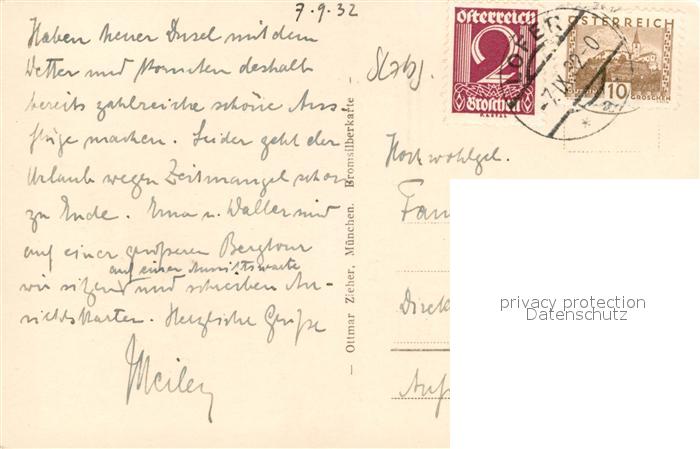 7.9.32
Haben heuer Dusel mit dem
Wetter und konnten deshalb
bereits zahlreiche schöne Aus-
flüge machen. Leider geht der
Urlaub wegen Zeitmangel schon
zu Ende. Erna u. Walter sind
auf einer größeren Bergtour
auf einer Aussichtswarte
wir sitzen und schreiben An-
sichtskarten. Herzliche Grüße
- Ottmar Zieher, München. Bromsilberkarte -
Österreich
2
Groschen
ÖSTERREICH
10
GROSCHEN
Hochwohlgeb.
Fam
Direk
privacy protection
Datenschutz